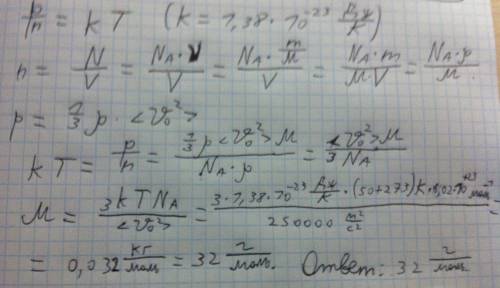 p/n = kT (k = 1,38·10⁻²³ Дж/К)
n = N/V = N_A·ν/V = (N_A·m/M)/V = N_A·m/(M·V) = N_A·ρ/M
p = 1/3 ρ·<v₀²>
kT = p/n = (1/3 ρ<v₀²>M)/(N_A·ρ) = <v₀²>M/(3N_A)
M = 3kTN_A/<v₀²> = (3·1,38·10⁻²³ Дж/К·(50+273)К·6,02·10²³ моль⁻¹)/(250000 м²/с²) =
= 0,032 кг/моль = 32 г/моль. Ответ: 32 г/моль